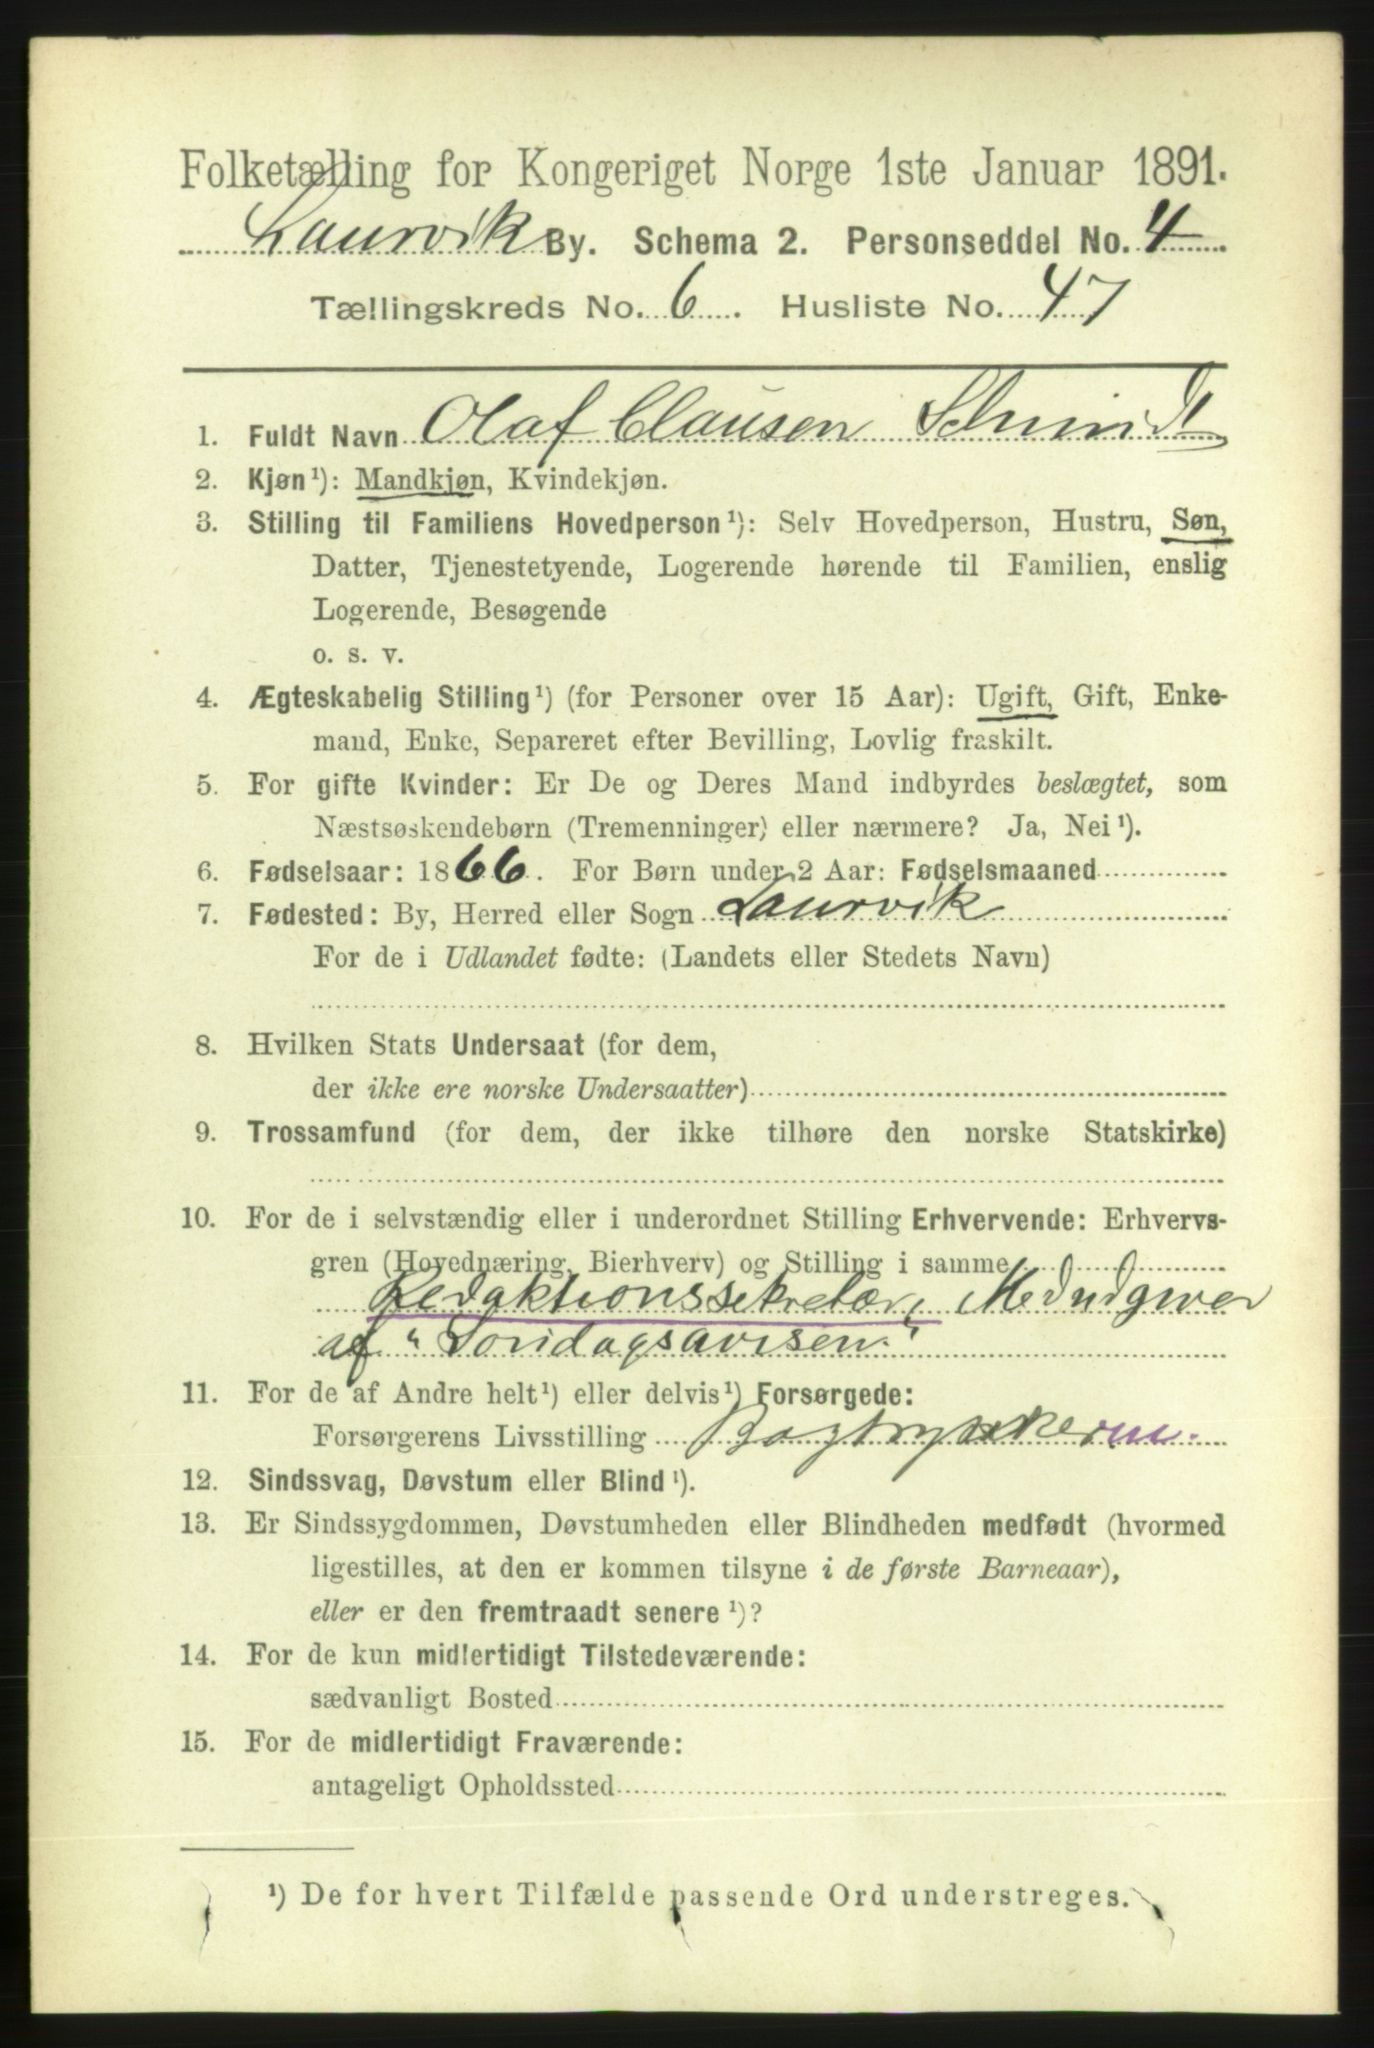 Folketælling for Kongeriget Norge 1ste Januar 1891.
Laurvik By. Schema 2. Personseddel No. 4
Tællingskreds No. 6. Husliste No. 47
1. Fuldt Navn Olaf Clausen Schmidt
2. Kjøn¹): Mandkjøn, Kvindekjøn.
3. Stilling til Familiens Hovedperson¹): Selv Hovedperson, Hustru, Søn,
Datter, Tjenestetyende, Logerende hørende til Familien, enslig
Logerende, Besøgende
o. s. v.
4. Ægteskabelig Stilling¹) (for Personer over 15 Aar): Ugift, Gift, Enke-
mand, Enke, Separeret efter Bevilling, Lovlig fraskilt.
5. For gifte Kvinder: Er De og Deres Mand indbyrdes beslægtet, som
Næstsøskendebørn (Tremenninger) eller nærmere? Ja, Nei¹).
6. Fødselsaar: 1866. For Børn under 2 Aar: Fødselsmaaned
7. Fødested: By, Herred eller Sogn Laurvik
For de i Udlandet fødte: (Landets eller Stedets Navn)
8. Hvilken Stats Undersaat (for dem,
der ikke ere norske Undersaatter)
9. Trossamfund (for dem, der ikke tilhøre den norske Statskirke)
10. For de i selvstændig eller i underordnet Stilling Erhvervende: Erhvervs-
gren (Hovednæring, Bierhverv) og Stilling i samme
Redaktionssekretær, Medudgiver
af "Söndagsavisen."
11. For de af Andre helt¹) eller delvis¹) Forsørgede:
Forsørgerens Livsstilling
12. Sindssvag, Døvstum eller Blind¹).
13. Er Sindssygdommen, Døvstumheden eller Blindheden medfødt (hvormed
ligestilles, at den er kommen tilsyne i de første Barneaar),
eller er den fremtraadt senere¹)?
14. For de kun midlertidigt Tilstedeværende:
sædvanligt Bosted
15. For de midlertidigt Fraværende:
antageligt Opholdssted
¹) De for hvert Tilfælde passende Ord understreges.